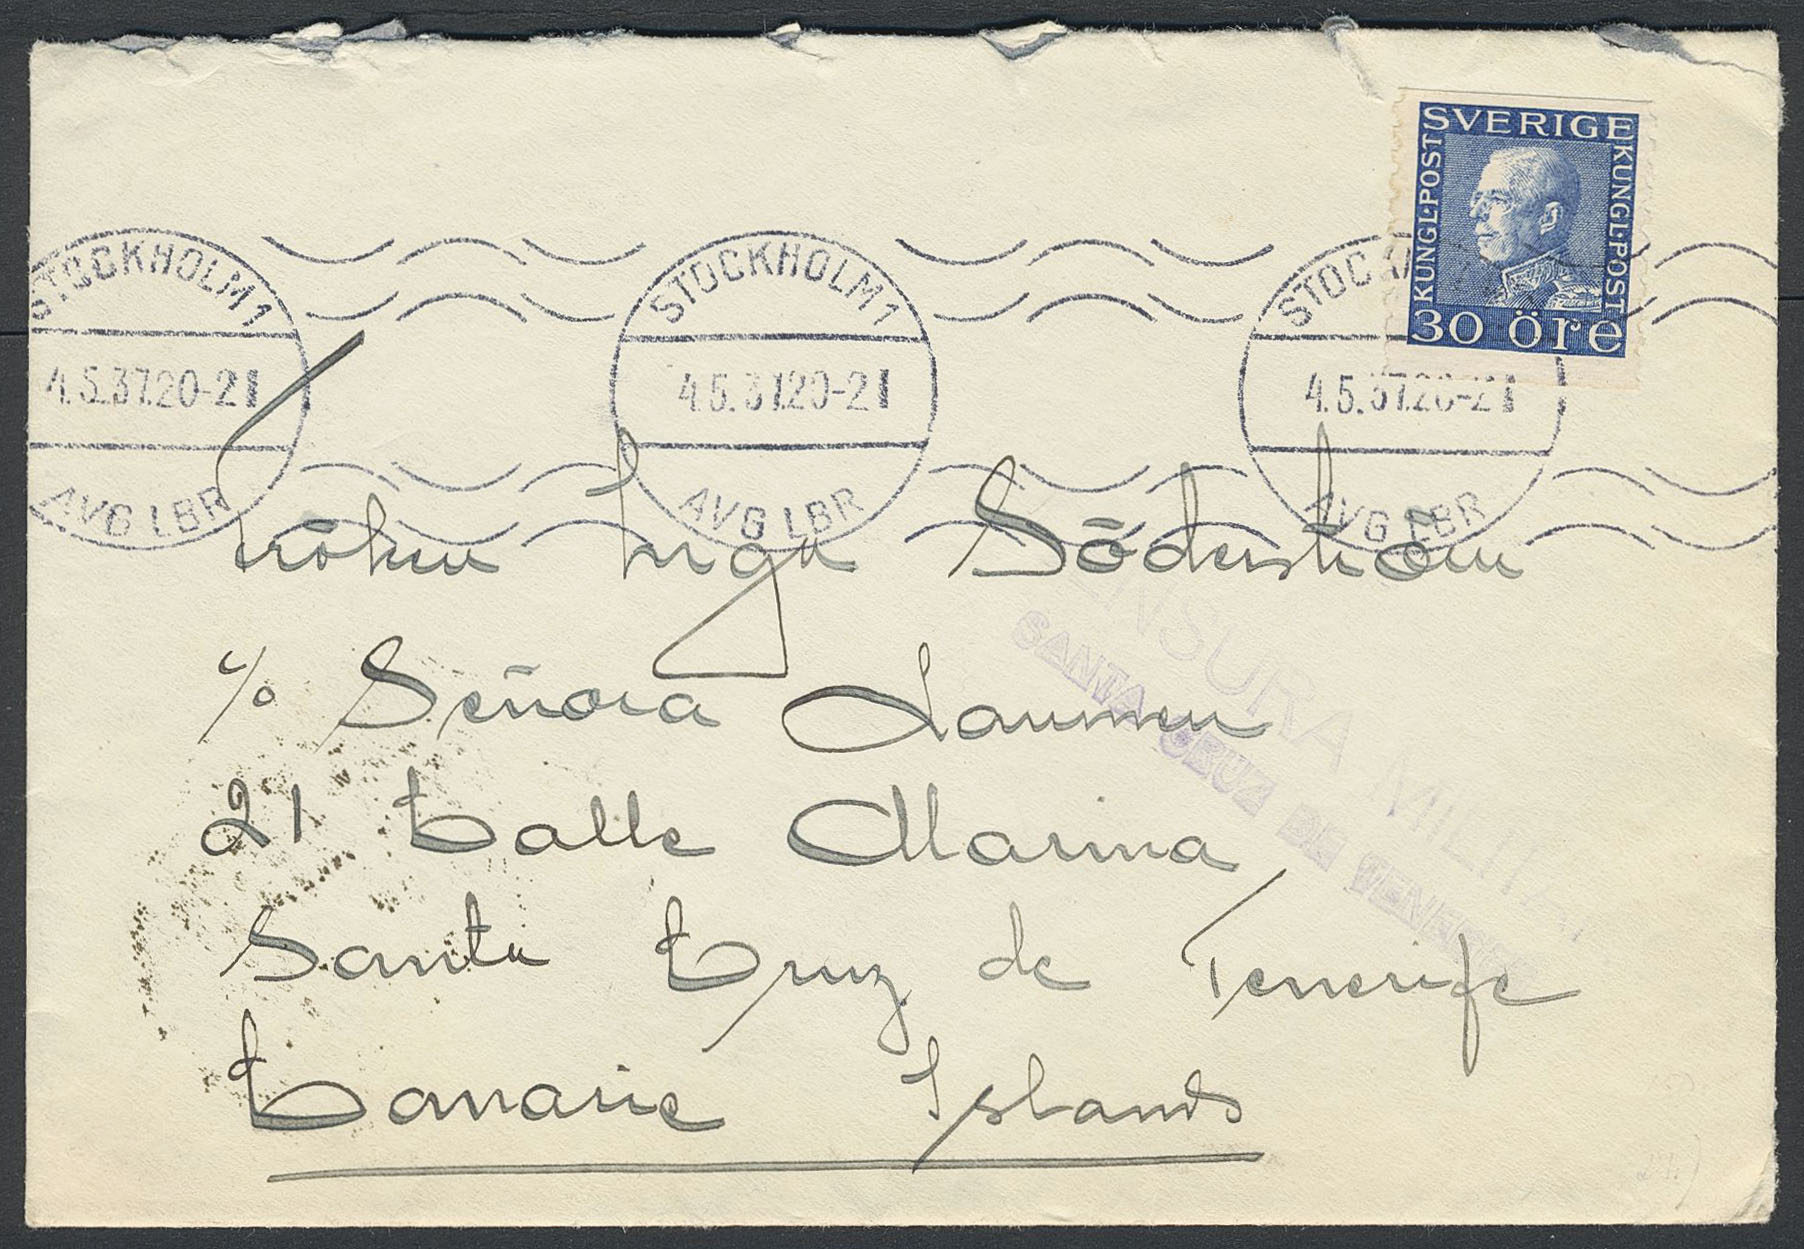 SVERIGE
KUNGL·POST
KUNGL·POST
30 öre
STOCKHOLM 1
4.5.37.20-21
AVG LBR
STOCKHOLM 1
4.5.37.20-21
AVG LBR
STOC
4.5.37.20-21
AVG LBR
Fröken Inga Söderström
c/o Señora Laumen
21 Calle Marina
Santa Cruz de Tenerife
Canarie Islands
CENSURA MILITAR
SANTA CRUZ DE TENERIFE